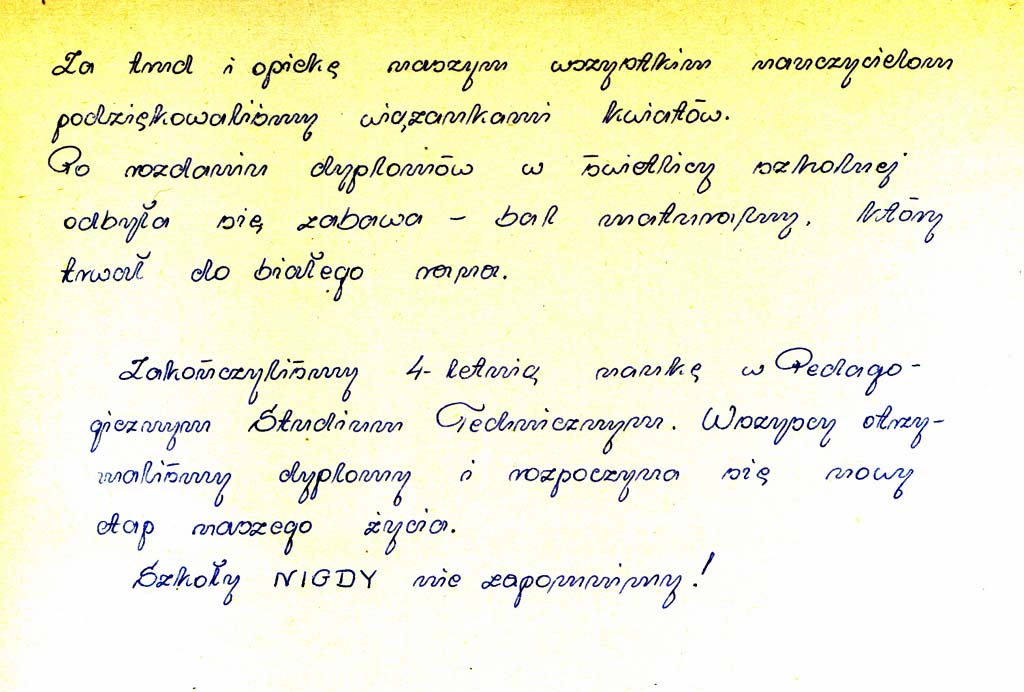 Za trud i opiekę naszym wszystkim nauczycielom
podziękowaliśmy wiązankami kwiatów.
Po rozdaniu dyplomów w świetlicy szkolnej
odbyła się zabawa – bal maturalny, który
trwał do białego rana.
Zakończyliśmy 4-letnią naukę w Pedago-
gicznym Studium Technicznym. Wszyscy otrzy-
maliśmy dyplomy i rozpoczyna się nowy
etap naszego życia.
Szkoły NIGDY nie zapomnimy!